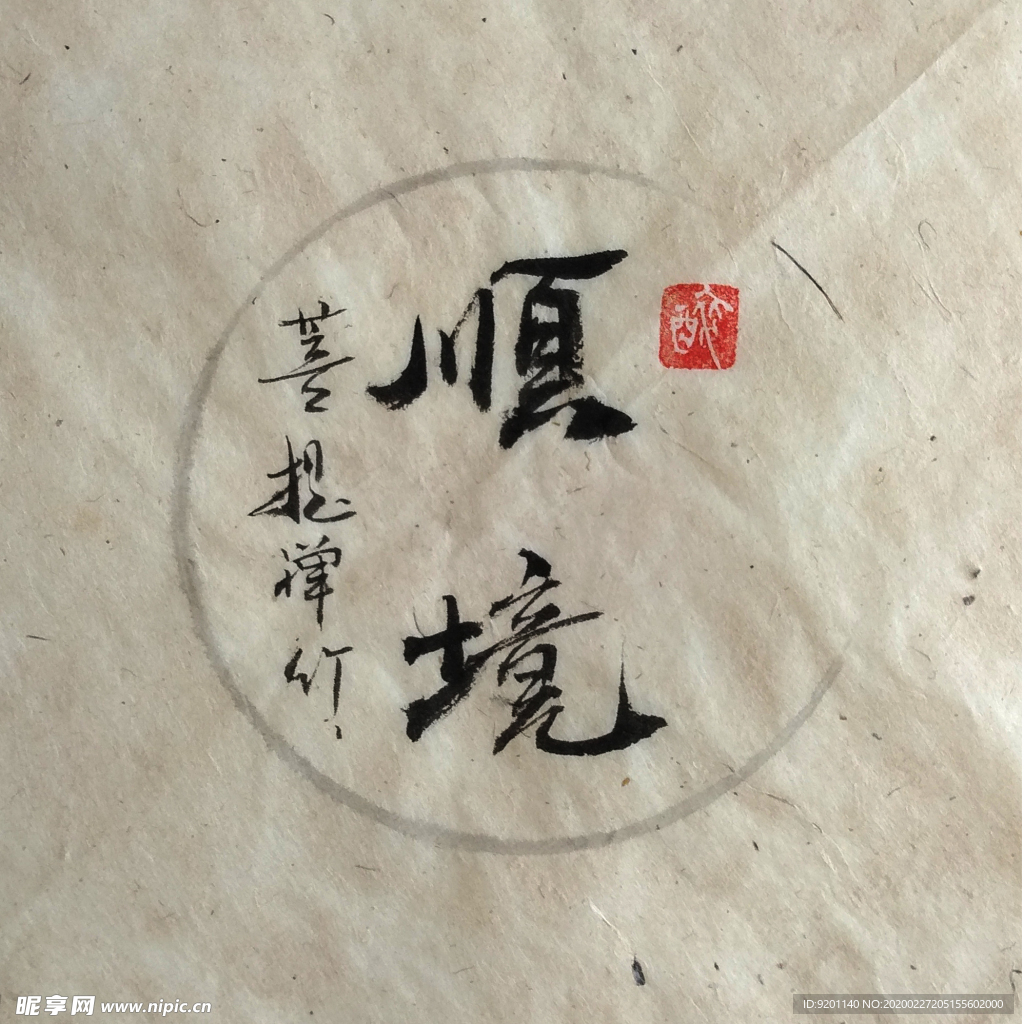 順境
菩提禅竹
昵享网 www.nipic.cn
ID:9201140 NO:20200227205155602000